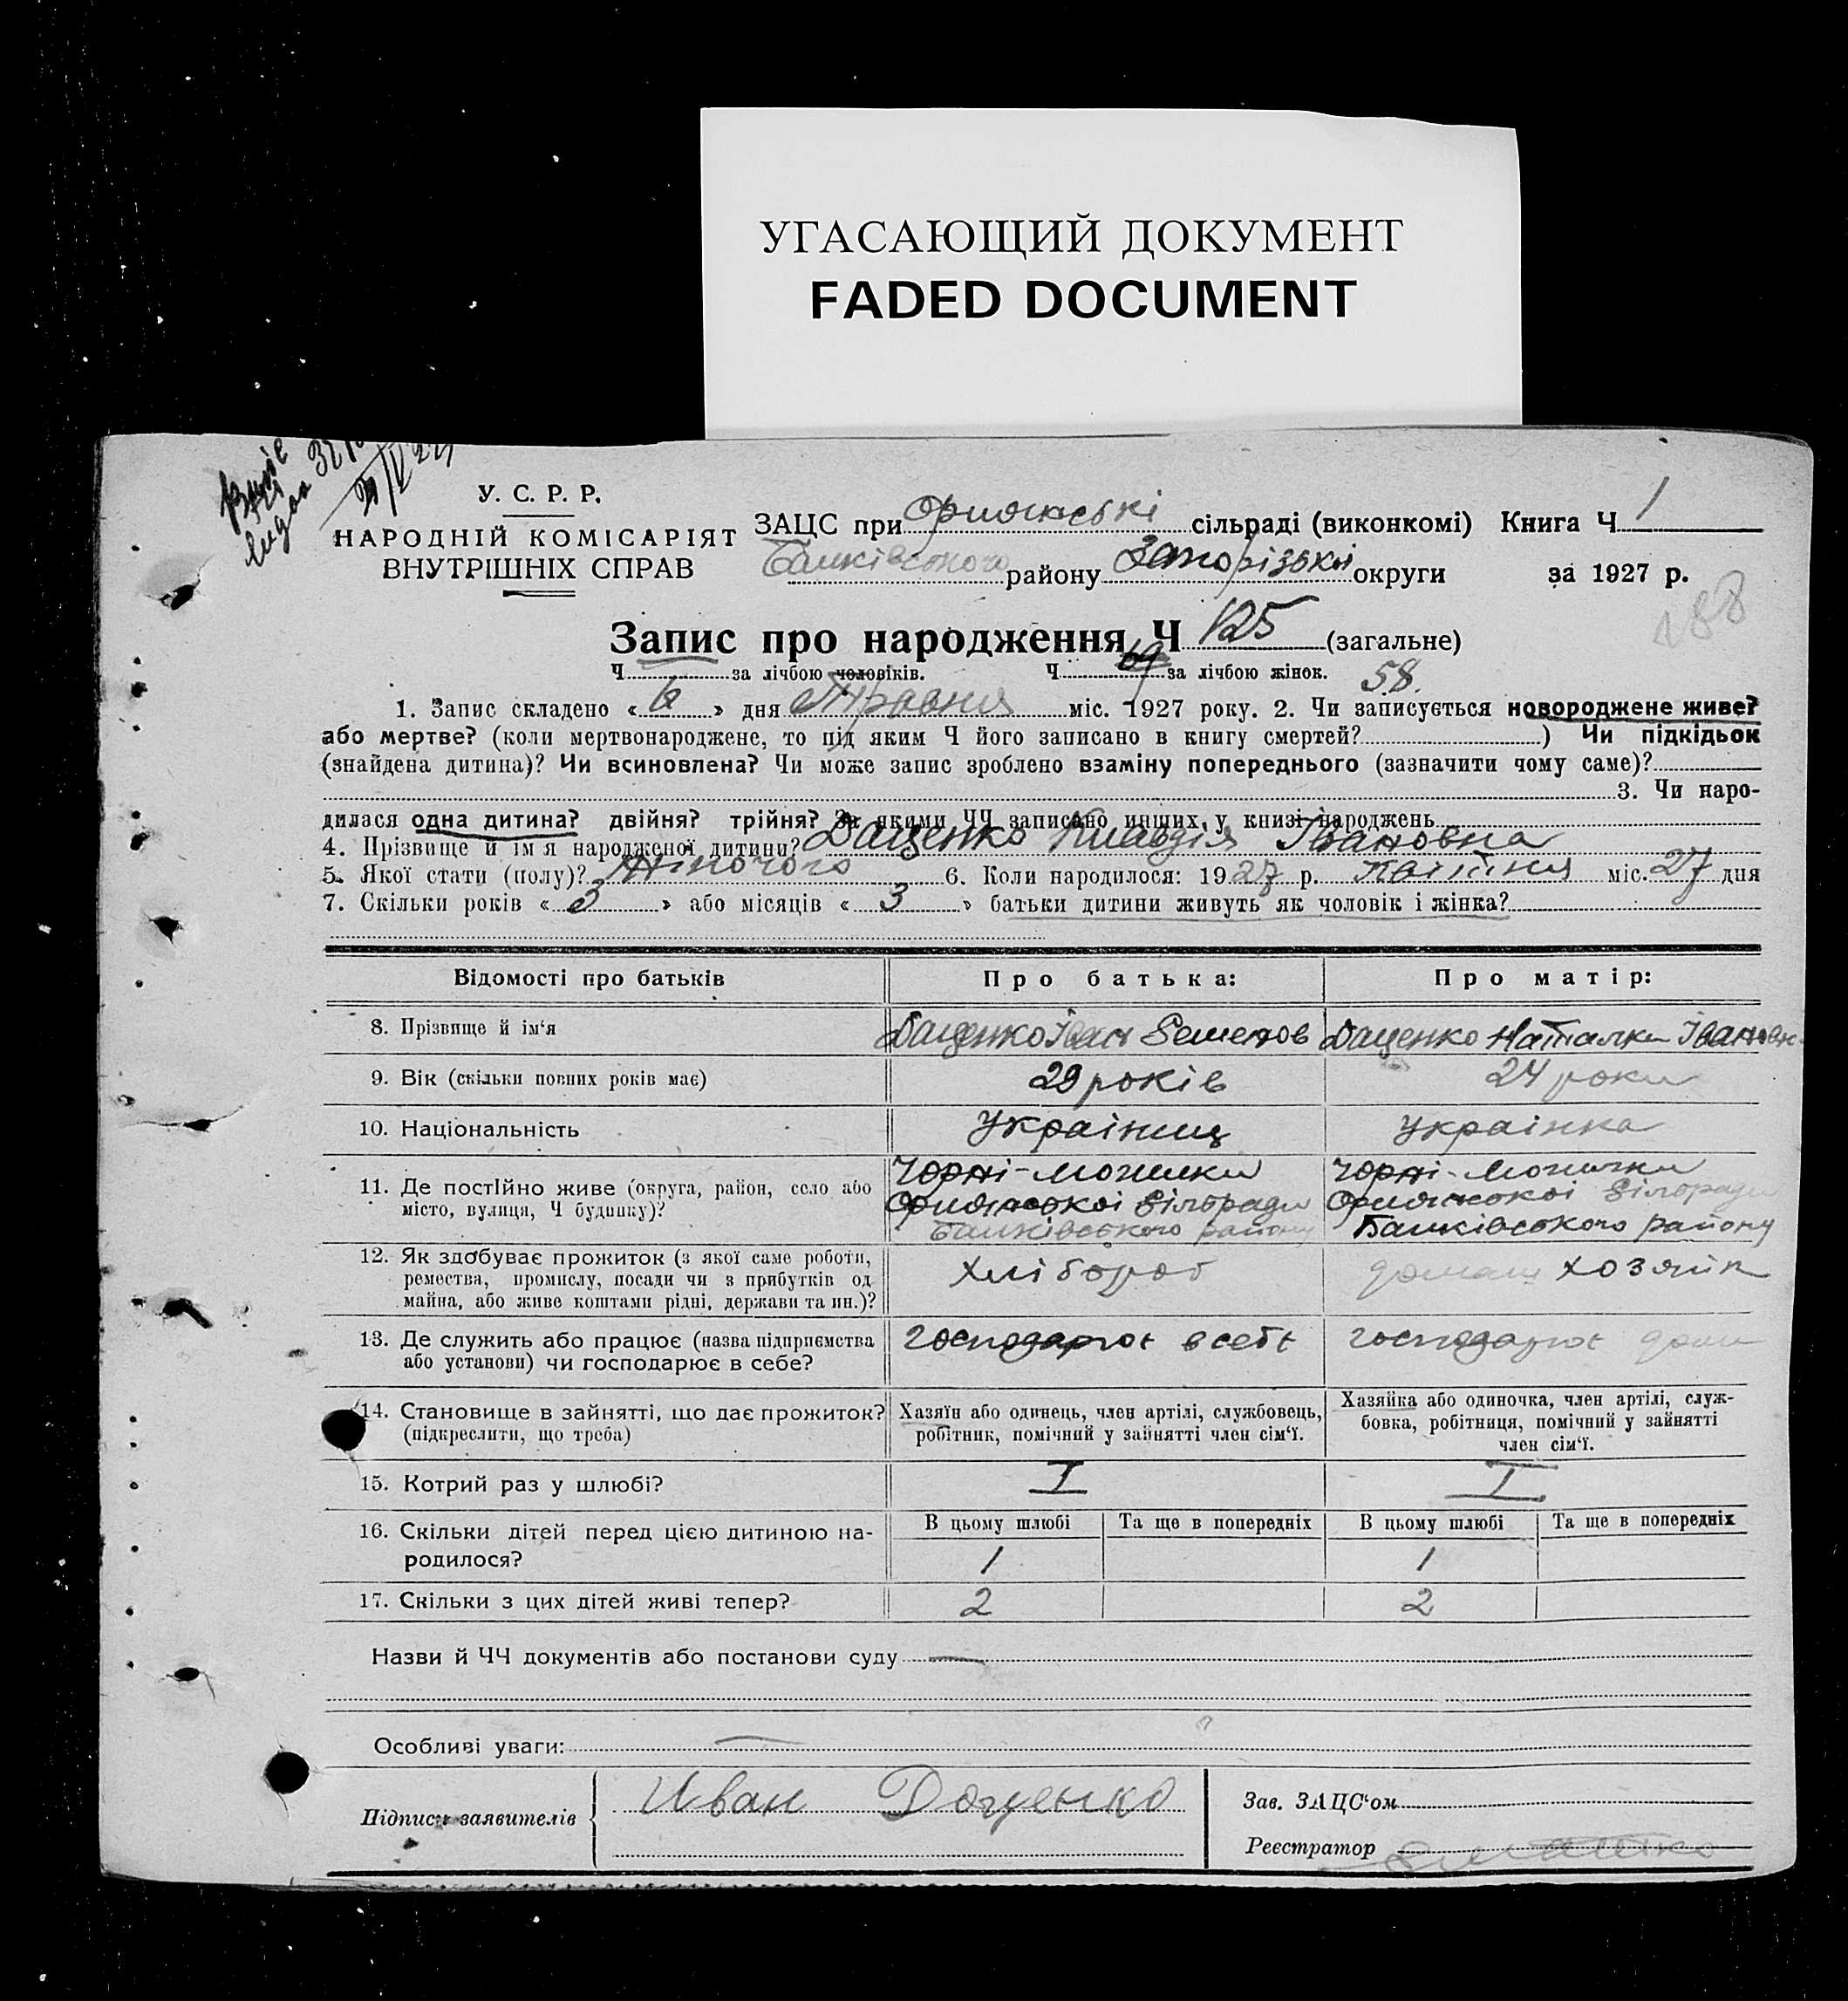 УГАСАЮЩИЙ ДОКУМЕНТ
FADED DOCUMENT
У. С. Р. Р.
НАРОДНІЙ КОМІСАРІЯТ
ВНУТРІШНІХ СПРАВ
ЗАЦС при сільраді (виконкомі) Книга Ч 1
району Запорізької округи за 1927 р.
188
Запис про народження Ч 125 (загальне)
Ч за лічбою чоловіків. Ч 69 за лічбою жінок. 58.
1. Запис складено « 6 » дня Травня міс. 1927 року. 2. Чи записується новороджене живе?
або мертве? (коли мертвонароджене, то під яким Ч його записано в книгу смертей? ) Чи підкідьок
(знайдена дитина)? Чи всиновлена? Чи може запис зроблено взаміну попереднього (зазначити чому саме)?
3. Чи наро-
дилася одна дитина? двійня? трійня? За якими ЧЧ записано инших у книзі народжень
4. Прізвище й ім'я народженої дитини? Даценко Клавдія Івановна
5. Якої стати (полу)? Жіночого 6. Коли народилося: 1927 р. Квітня міс. 27 дня
7. Скільки років « 3 » або місяців « 3 » батьки дитини живуть як чоловік і жінка?
Відомості про батьків Про батька: Про матір:
8. Прізвище й ім'я Даценко Іван Семенов Даценко Наталка Івановн
9. Вік (скільки повних років має) 29 років 24 роки
10. Національність Українец Українка
11. Де постійно живе (округа, район, село або місто, вулиця, Ч будинку)? Чорні-могилки сілоради району Чорні-могилки сілоради району
12. Як здобуває прожиток (з якої саме роботи, ремества, промислу, посади чи з прибутків од майна, або живе коштами рідні, держави та ин.)? Хлібороб домаш хозяйк
13. Де служить або працює (назва підприємства або установи) чи господарює в себе? господарює в себе господарює дома
14. Становище в зайнятті, що дає прожиток? (підкреслити, що треба) Хазяїн або одинець, член артілі, службовець, робітник, помічний у зайнятті член сім'ї. Хазяйка або одиночка, член артілі, служ-бовка, робітниця, помічний у зайнятті член сім'ї.
15. Котрий раз у шлюбі? I I
16. Скільки дітей перед цією дитиною на-родилося? В цьому шлюбі Та ще в попередніх В цьому шлюбі Та ще в попередніх
1 1
17. Скільки з цих дітей живі тепер? 2 2
Назви й ЧЧ документів або постанови суду —
Особливі уваги: —
Підписи заявителів Иван Доценко
Зав. ЗАЦС'ом
Реєстратор